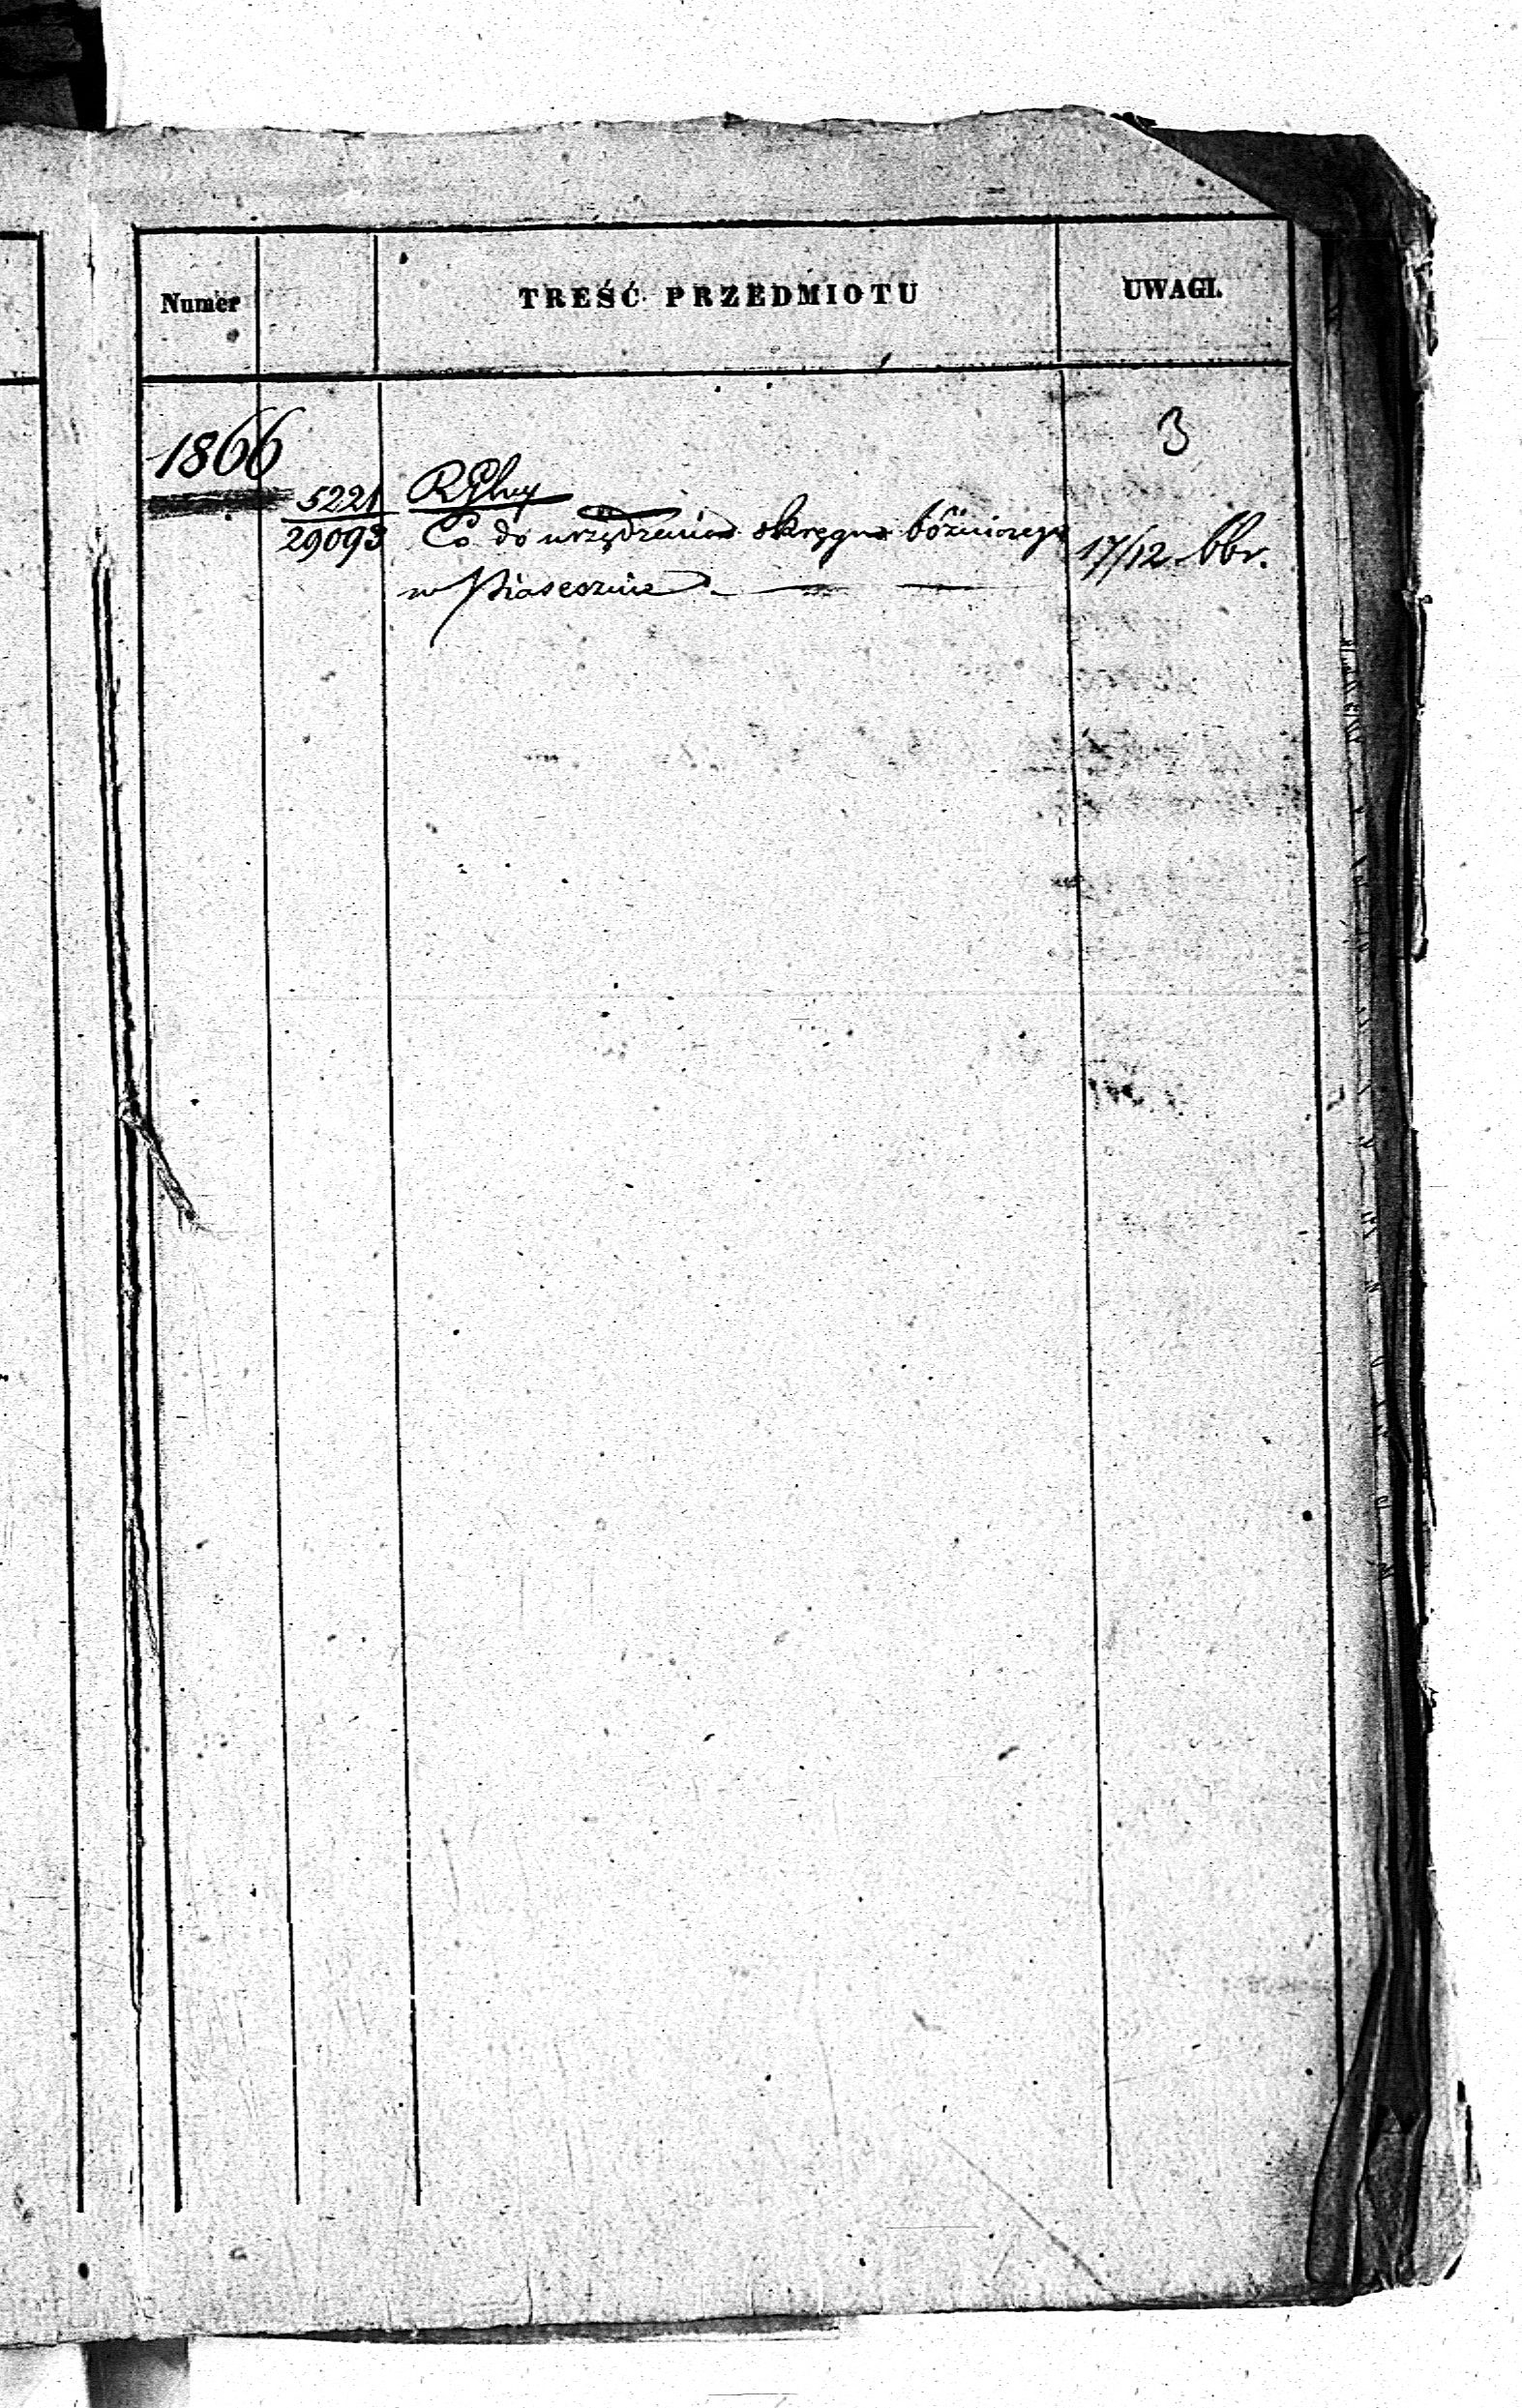 Numer TREŚĆ PRZEDMIOTU UWAGI.
3
1866
5221 
29093 Co do urządzenia okręgu bóżniczego 17/12 bbr.
w Piasecznie